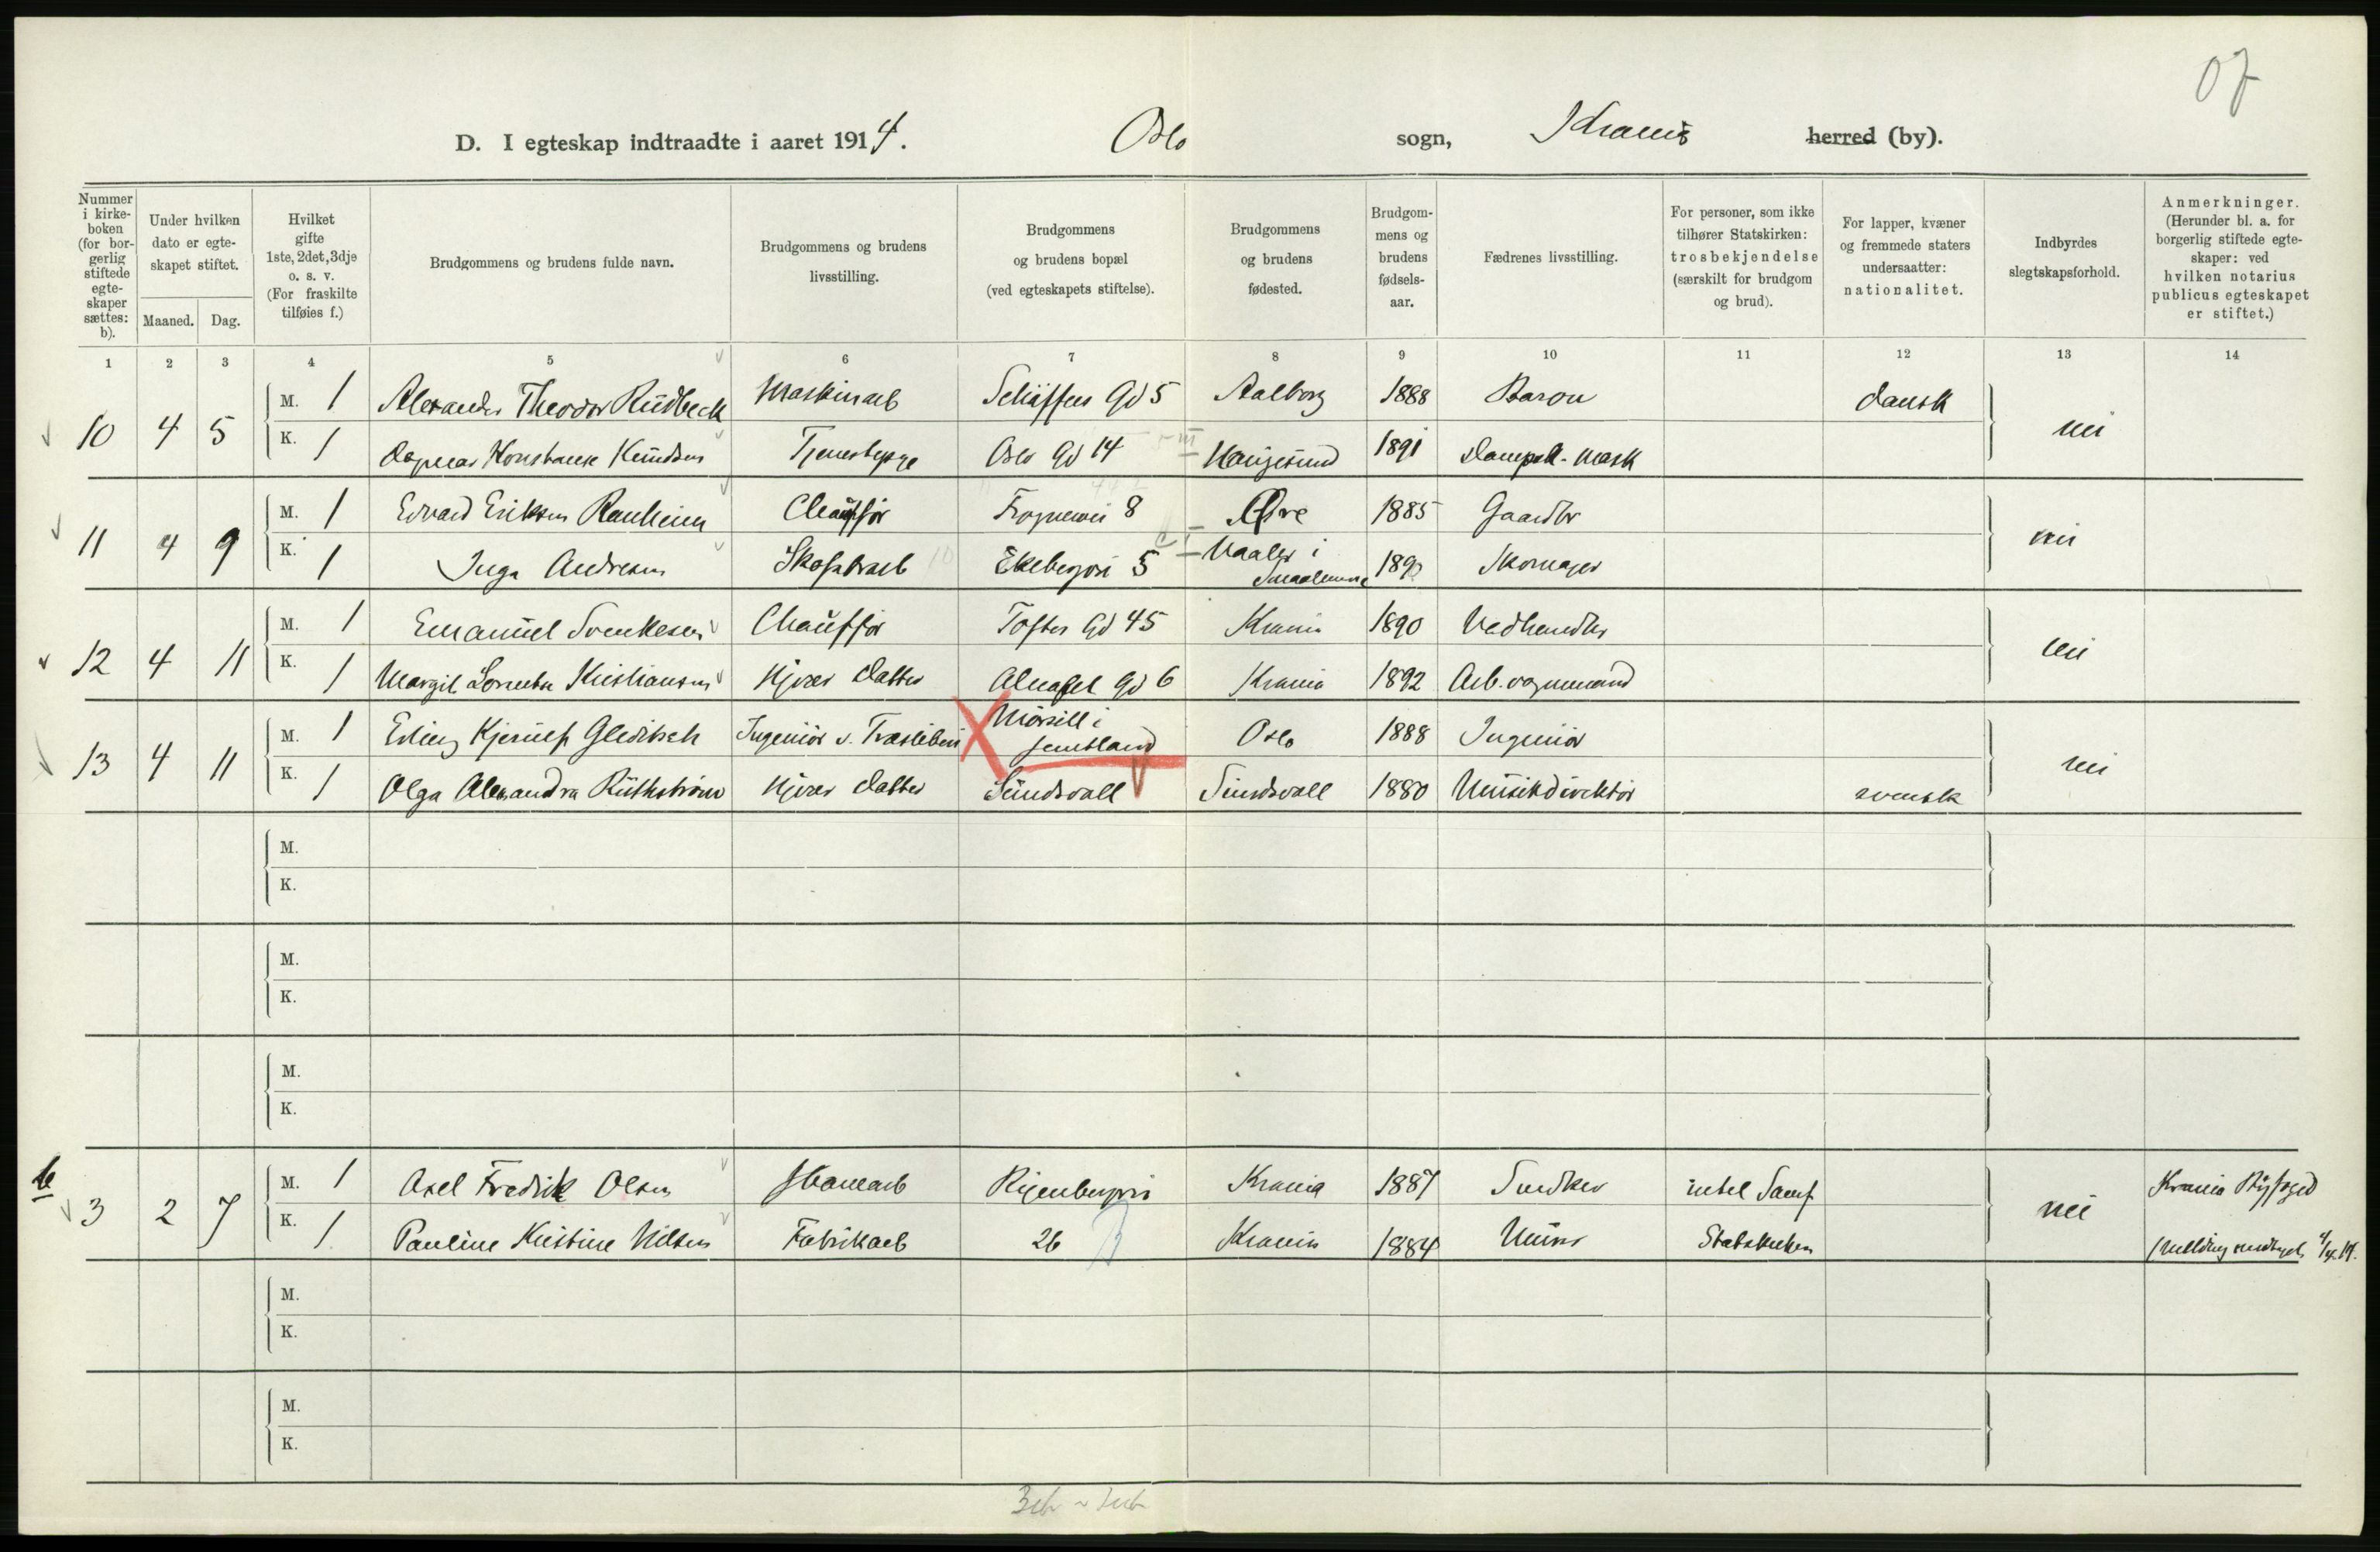 07
D. I egteskap indtraadte i aaret 1914. Oslo sogn, Krania herred (by).
Nummer i kirke-boken (for bor-gerlig stiftede egte-skaper sættes: b).
Under hvilken dato er egte-skapet stiftet.
Maaned. Dag.
Hvilket gifte 1ste, 2det, 3dje o. s. v. (For fraskilte tilføies f.)
Brudgommens og brudens fulde navn.
Brudgommens og brudens livsstilling.
Brudgommens og brudens bopæl (ved egteskapets stiftelse).
Brudgommens og brudens fødested.
Brudgom-mens og brudens fødsels-aar.
Fædrenes livsstilling.
For personer, som ikke tilhører Statskirken: trosbekjendelse (særskilt for brudgom og brud).
For lapper, kvæner og fremmede staters undersaatter: nationalitet.
Indbyrdes slegtskapsforhold.
Anmerkninger. (Herunder bl. a. for borgerlig stiftede egte-skaper: ved hvilken notarius publicus egteskapet er stiftet.)
1 2 3 4 5 6 7 8 9 10 11 12 13 14
10 4 5 M. 1 Alexander Theodor Rüdbeck Maskinarb Schäffers Gd 5 Aalborg 1888 Baron dansk nei
K. 1 Dagmar Konstanse Knudsen Tjenestepige Oslo Gd 14 Haugesund 1891 Dampsk. mask
11 4 9 M. 1 Edvard Eriksen Ranheim Chauffør Frognervei 8 Øre 1885 Gaardbr nei
K. 1 Inga Andresen Skofabrarb Ekebergvei 5 Vaaler i Smaalenene 1890 Skomager
12 4 11 M. 1 Emanuel Svenkesen Chauffør Toftes Gd 45 Krania 1890 Vedhandler nei
K. 1 Margit Lorentse Kristiansen Hjvær Datter Alnafet Gd 6 Krania 1892 Arb. vognmand
13 4 11 M. 1 Erling Kjerulf Gleditsch Ingeniør v. Træsliberi Mörsill i Jemtland Oslo 1888 Ingeniør nei
K. 1 Olga Alexandra Rüthström Hjvær Datter Sundsvall Sundsvall 1880 Musikdirektør svensk
M.
K.
M.
K.
M.
K.
b 3 2 7 M. 1 Axel Fredrik Olsen Rigenbergvei Krania 1887 Snedker intet Samf nei Krania Byfoged
K. 1 Pauline Kristine Nilsen Fabrikarb 26 Krania 1884 Murer Statskirken
M.
K.
M.
K.